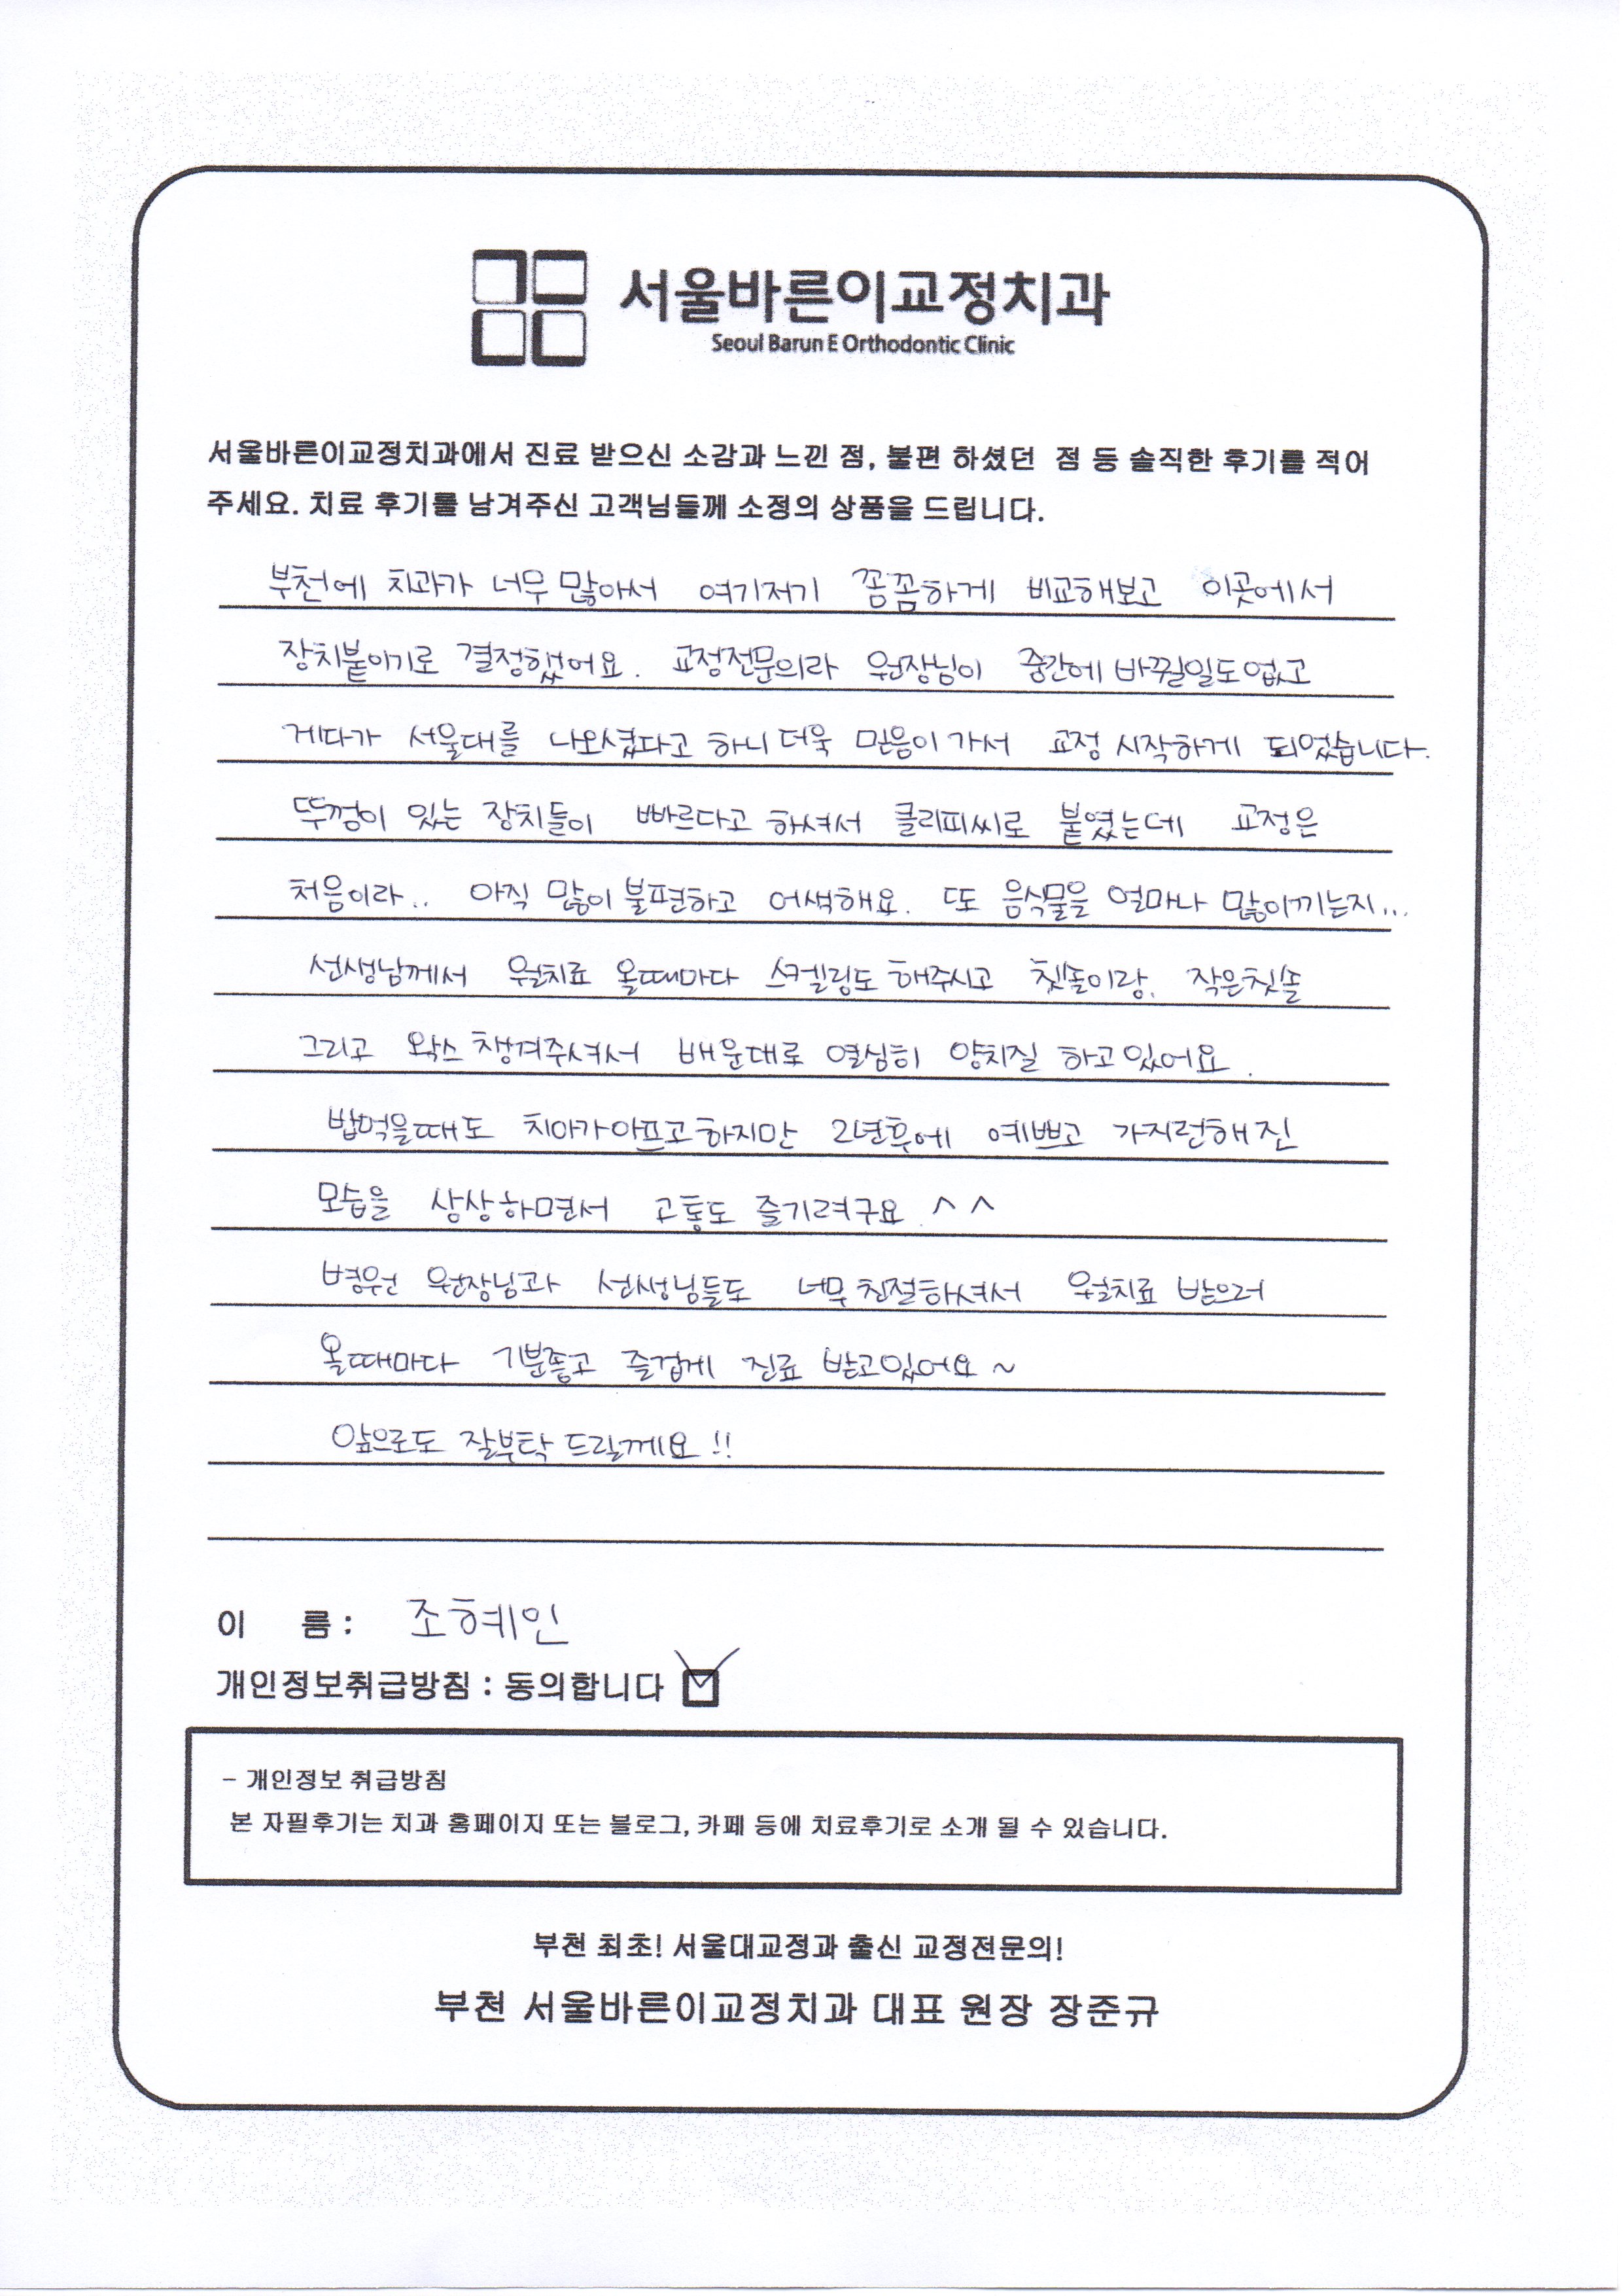 서울바른이교정치과
Seoul Barun E Orthodontic Clinic
서울바른이교정치과에서 진료 받으신 소감과 느낀 점, 불편 하셨던 점 등 솔직한 후기를 적어
주세요. 치료 후기를 남겨주신 고객님들께 소정의 상품을 드립니다.
부천에 치과가 너무 많아서 여기저기 꼼꼼하게 비교해보고 이곳에서
장치붙이기로 결정했어요. 교정전문의라 원장님이 중간에 바뀔일도없고
게다가 서울대를 나오셨다고 하니 더욱 믿음이 가서 교정 시작하게 되었습니다.
뚜껑이 있는 장치들이 빠르다고 하셔서 클리피씨로 붙였는데 교정은
처음이라.. 아직 많이 불편하고 어색해요. 또 음식물은 얼마나 많이끼는지...
선생님께서 월치료 올때마다 스케일링도 해주시고 칫솔이랑, 작은칫솔
그리고 왁스 챙겨주셔서 배운대로 열심히 양치질 하고있어요.
밥먹을때도 치아가아프고하지만 2년후에 예쁘고 가지런해진
모습을 상상하면서 고통도 즐기려구요.^^
병원 원장님과 선생님들도 너무 친절하셔서 월치료 받으러
올때마다 기분좋고 즐겁게 진료 받고있어요~
앞으로도 잘부탁 드릴께요!!
이 름: 조혜인
개인정보취급방침 : 동의합니다
- 개인정보 취급방침
본 자필후기는 치과 홈페이지 또는 블로그, 카페 등에 치료후기로 소개 될 수 있습니다.
부천 최초! 서울대교정과 출신 교정전문의!
부천 서울바른이교정치과 대표 원장 장준규